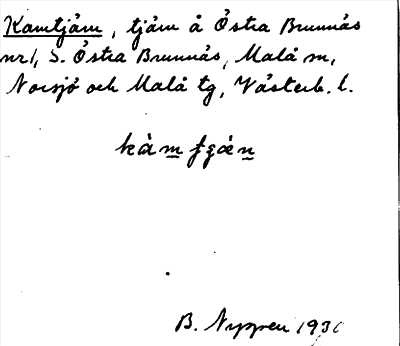 Kamtjärn, tjärn å Östra Brunnäs
nr 1, S. Östra Brunnäs, Malå sn,
Norsjö och Malå tg, Västerb. l.
B. Nyppren 193